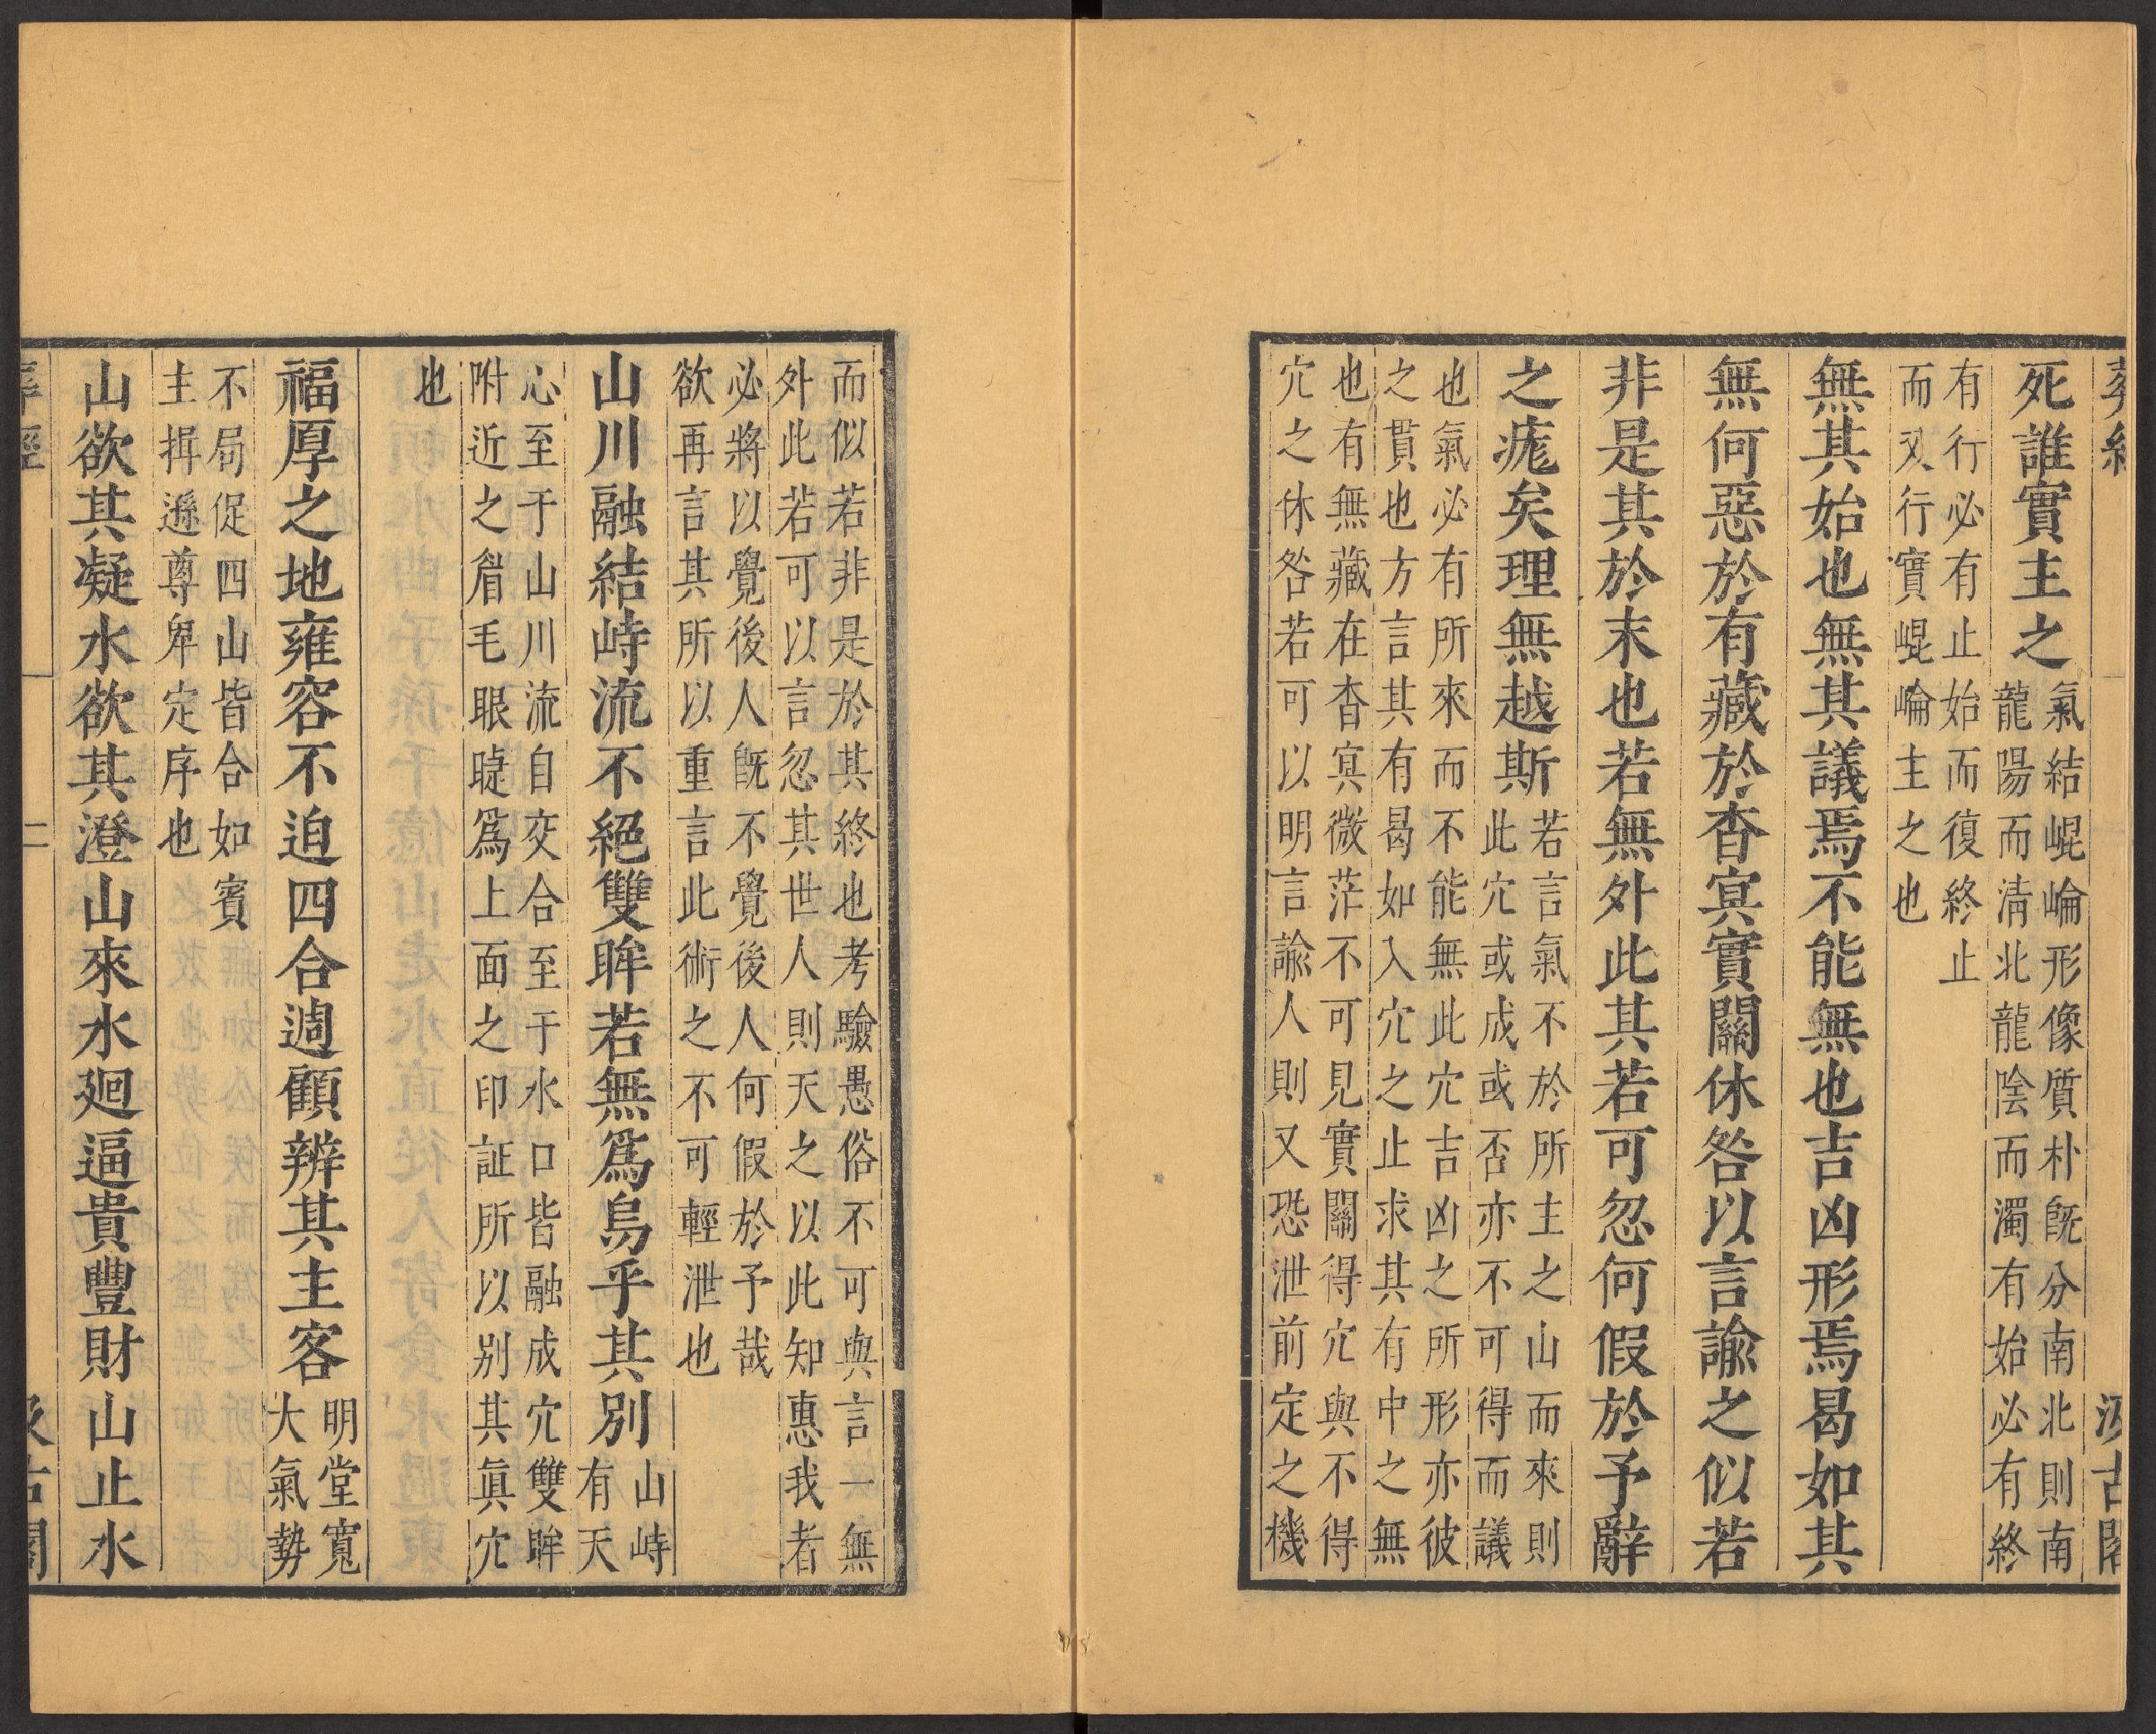 葬經 汲古閣
死誰實主之
氣結崐崙形像質朴旣分南北則南南
龍陽而淸北龍陰而濁有始必有終
有行必有止始而復終止
而又行實崐崙主之也
無其始也無其議焉不能無也吉凶形焉曷如其
無何惡於有藏於杳冥實關休咎以言諭之似若
非是其於末也若無外此其若可忽何假於予辭
之痝矣理無越斯
若言氣不於所主之山而來則
此穴或成或否亦不可得而議
也氣必有所來而不能無此穴吉凶之所形亦彼
之貫也方言其有曷如入穴之止求其有中之無
也有無藏在杳冥微茫不可見實關得穴與不得
穴之休咎若可以明言諭人則又恐泄前定之機
而似若非是於其終也考驗愚俗不可與言一無
外此若可以言忽其世人則天之以此知惠我者
必將以覺後人旣不覺後人何假於予哉
欲再言其所以重言此術之不可輕泄也
山川融結峙流不絕雙眸若無爲烏乎其別
山峙
有天
心至于山川流自交合至于水口皆融成穴雙眸
附近之眉毛眼睫爲上面之印証所以別其眞穴
也
福厚之地雍容不迫四合週顧辨其主客
明堂寬
大氣勢
不局促四山皆合如賓
主揖遜尊卑定序也
山欲其凝水欲其澄山來水廻逼貴豐財山止水
葬經 二 汲古閣